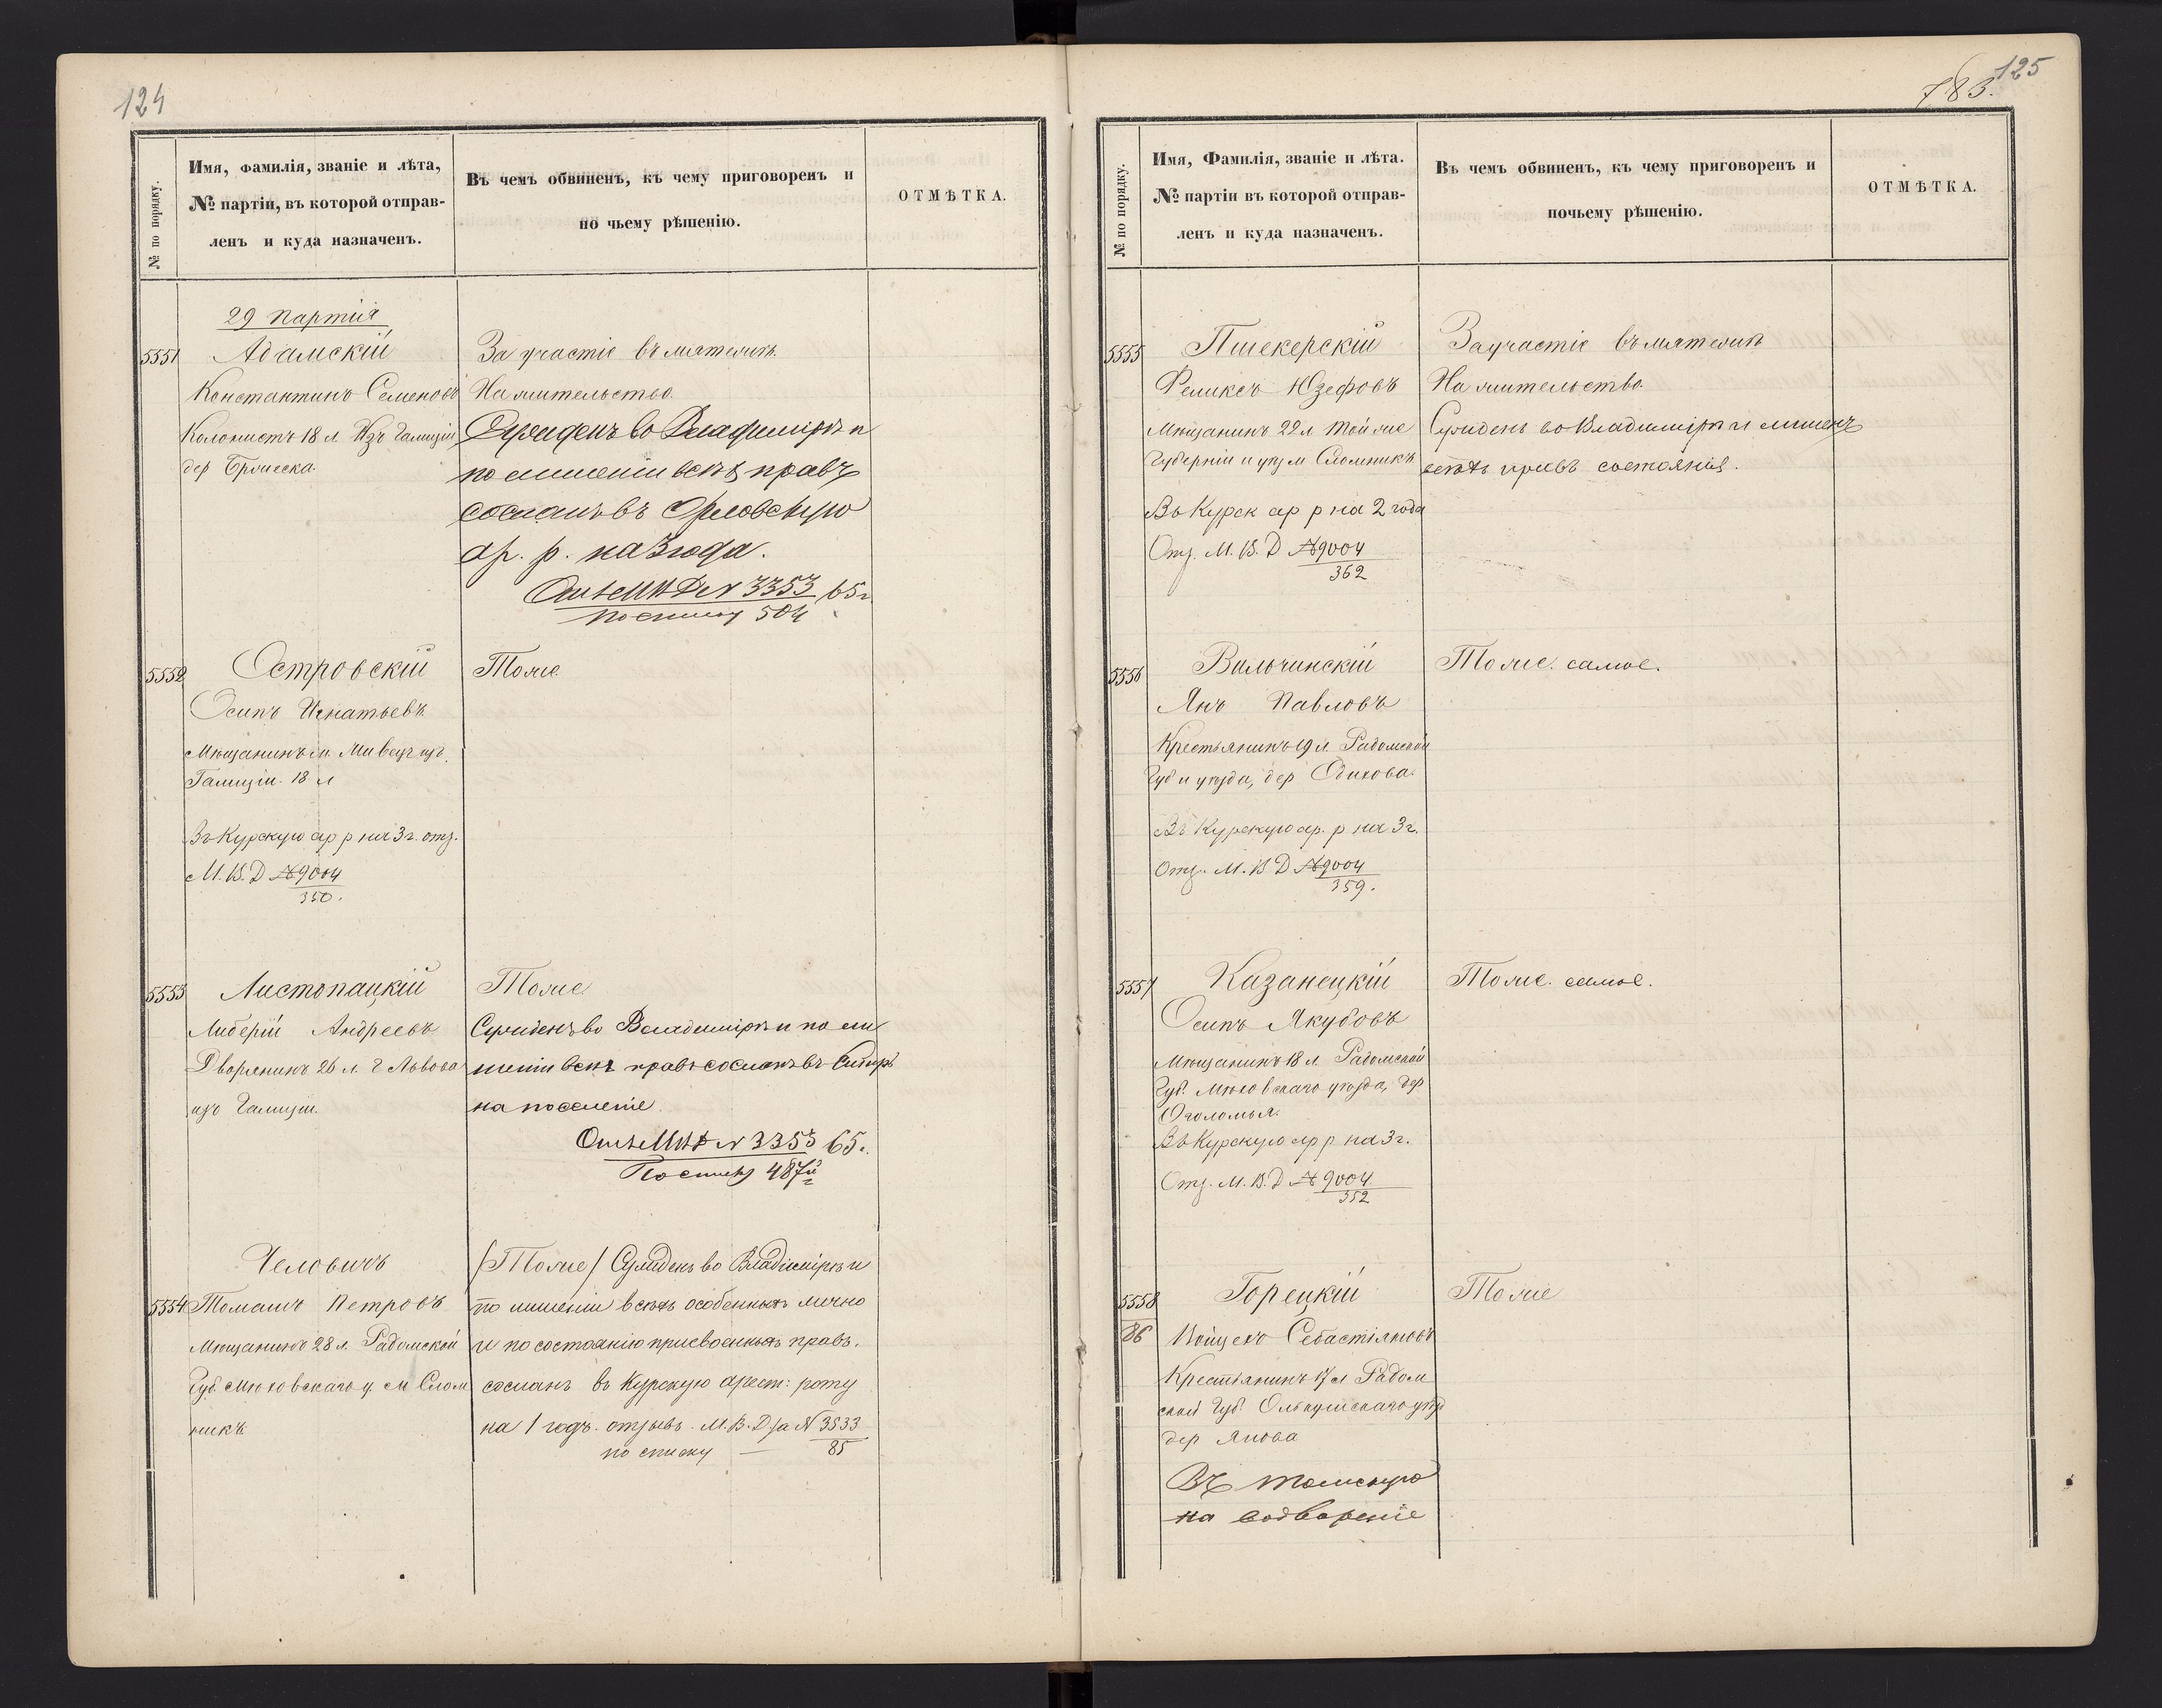 124
№ по порядку.
Имя, фамилія, званіе и лѣта,
№ партіи, въ которой отправ-
ленъ и куда назначенъ.
Въ чемъ обвиненъ, къ чему приговоренъ и
по чьему рѣшенію.
ОТМѢТКА.
29 партія
5551 Адамскій
Константинъ Семеновъ
Колонистъ 18 л. Изъ Галиціи
дер
За участіе въ мятежѣ.
На жительство.
Сужденъ во Владимірѣ и
по лишеніи всѣхъ правъ
сосланъ въ Орловскую
ар. р. на 3 года.
№ 3353 65 г.
по списку 504
5552 Островскій
Осипъ Игнатьевъ
Мѣщанинъ м. изъ
Галиціи. 18 л
Въ Курскую ар р на 3 г. отз.
М. В. Д №9004
350.
Тоже.
5553 Листопацкій
Либерій Андреевъ
Дворянинъ 26 л. г Львова
изъ Галиціи.
Тоже.
Сужденъ во Владимірѣ и по ли
шеніи всѣхъ правъ сосланъ въ Сибирь
на поселеніе.
№ 3353 65 г.
По списку 487й
Челович
5554 Томашъ Петровъ
Мѣщанинъ 28 л. Радомской
Губ. Мѣховскаго у. м Слом
никъ
/Тоже/ Сужденъ во Владимірѣ и
по лишеніи всѣхъ особенныхъ лично
и по состоянію присвоенныхъ правъ.
сосланъ въ Курскую арест: роту
на 1 годъ. отзывъ. М. В. Д за № 3533
по списку — 85
125
783.
№ по порядку.
Имя, Фамилія, званіе и лѣта.
№ партіи въ которой отправ-
ленъ и куда назначенъ.
Въ чемъ обвиненъ, къ чему приговоренъ и
почьему рѣшенію.
ОТМѢТКА.
5555 Пшекерскій
Феликсъ Юзефовъ
Мѣщанинъ 22 л той же
Губерніи и уѣз м Сломникъ
Въ Курск ар р на 2 года
Отз. М. В. Д №9004
362
За участіе въ мятежѣ
На жительство.
Сужденъ во Владимірѣ и лишенъ
всѣхъ правъ состоянія.
5556 Вильчинскій
Янъ Павловъ
Крестьянинъ 19 л Радомской
Губ и уѣзда, дер
Въ Курскую ар. р на 3 г.
Отз. М. В Д №9004
359.
Тоже. самое.
5557 Казанецкій
Осипъ Якубовъ
Мѣщанинъ 18 л. Радомской
Губ. Мѣховскаго уѣзда, дер
Въ Курскую ар р на 3 г.
Отз. М. В. Д №9004
352
Тоже. самое.
5558 Горецкій
86 Войцехъ Себастіяновъ
Крестьянинъ 17 л Радом
ской Губ. Олькушскаго уѣзд
дер Янова
Въ томскую
на водвореніе
Тоже